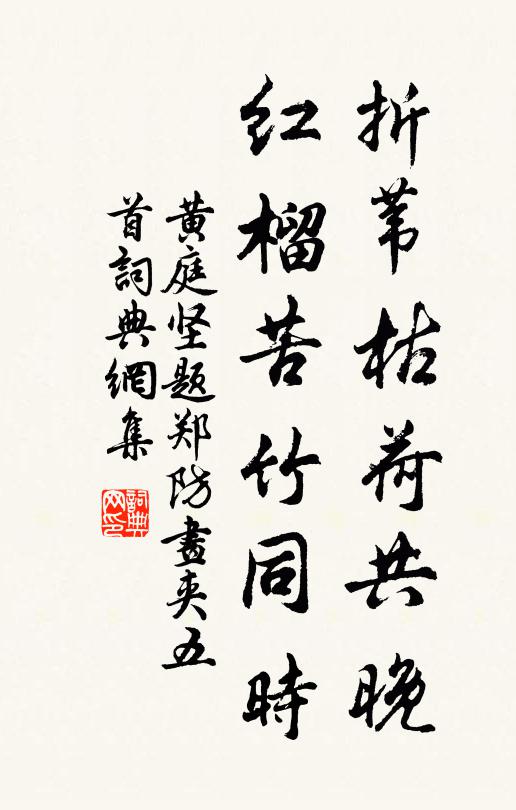 折苇枯荷共晚
红榴苦竹同時
黄庭坚题郑防畫夹五
首詞典網集
詞典网印